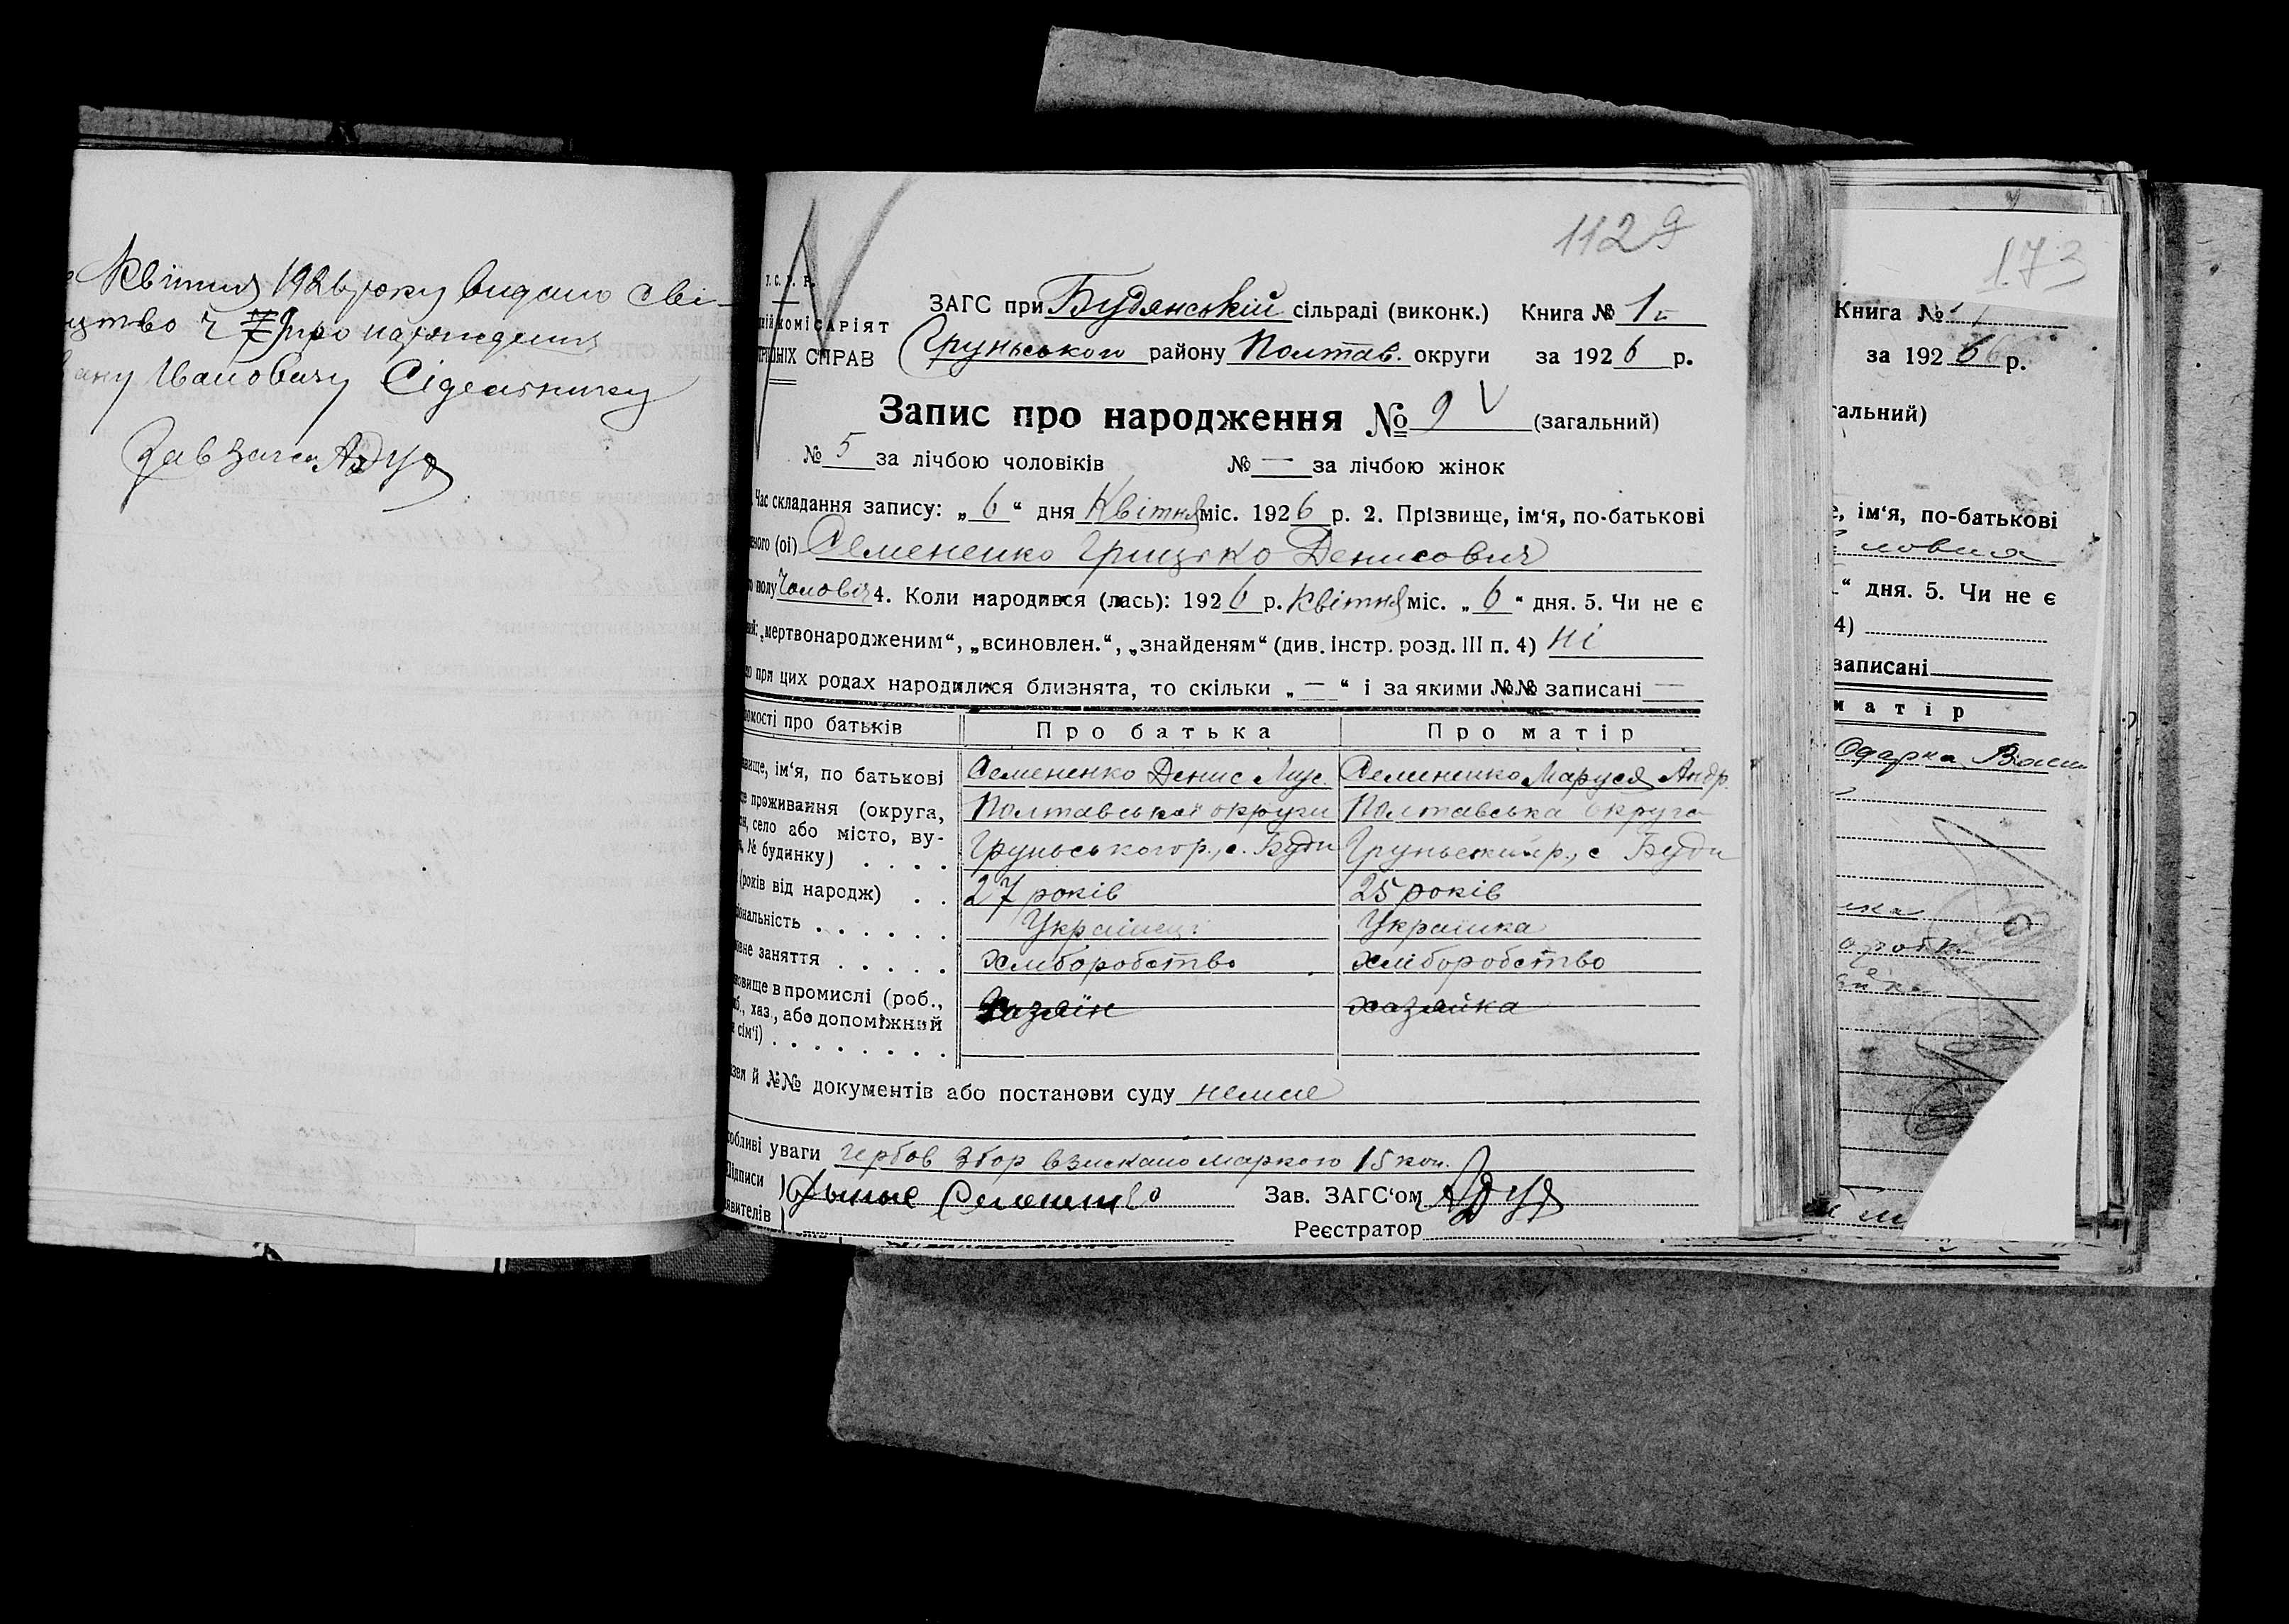 Квітня 1926 року видано сві-
цтво ч про народження
Івановичу
Зав Загса
1129
У.С.Р.Р.
КОМІСАРІЯТ
СПРАВ
ЗАГС при Будянській сільраді (виконк.) Книга № 1
Груньського району Полтав. округи за 1926 р.
Запис про народження № 9 V (загальний)
№ 5 за лічбою чоловіків № — за лічбою жінок
Час складання запису: „6“ дня Квітня міс. 1926 р. 2. Прізвище, ім'я, по-батькові
ного (ої) Семененко Грицько Денисович
полу Чоловіч 4. Коли народився (лась): 1926 р. Квітня міс. „6“ дня. 5. Чи не є
„мертвонародженим“, „всиновлен.“, „знайденям“ (див. інстр. розд. III п. 4) ні
при цих родах народилися близнята, то скільки „—“ і за якими №№ записані —
мості про батьків Про батька Про матір
вище, ім'я, по батькові Семененко Денис Семененко Маруся Андр.
проживання (округа, Полтавської округи Полтавська округа
село або місто, ву-
№ будинку) . . . . Груньського р., с. Буди Груньский р., с Буди
(років від народж) . . 27 років 25 років
ональність . . . . . . Українец Українка
вне заняття . . . . . Хліборобство хліборобство
овище в промислі (роб., Хазяїн хазяйка
хаз., або допоміжний
сім'ї) . . . . . . . .
й №№ документів або постанови суду немає
собливі уваги гербов збор взискано маркою 15 коп.
Підписи
явителів Зав. ЗАГС'ом
Реєстратор
173
Книга №
за 1926 р.
гальний)
е, ім'я, по-батькові
“ дня. 5. Чи не є
4)
записані
матір
Одарка